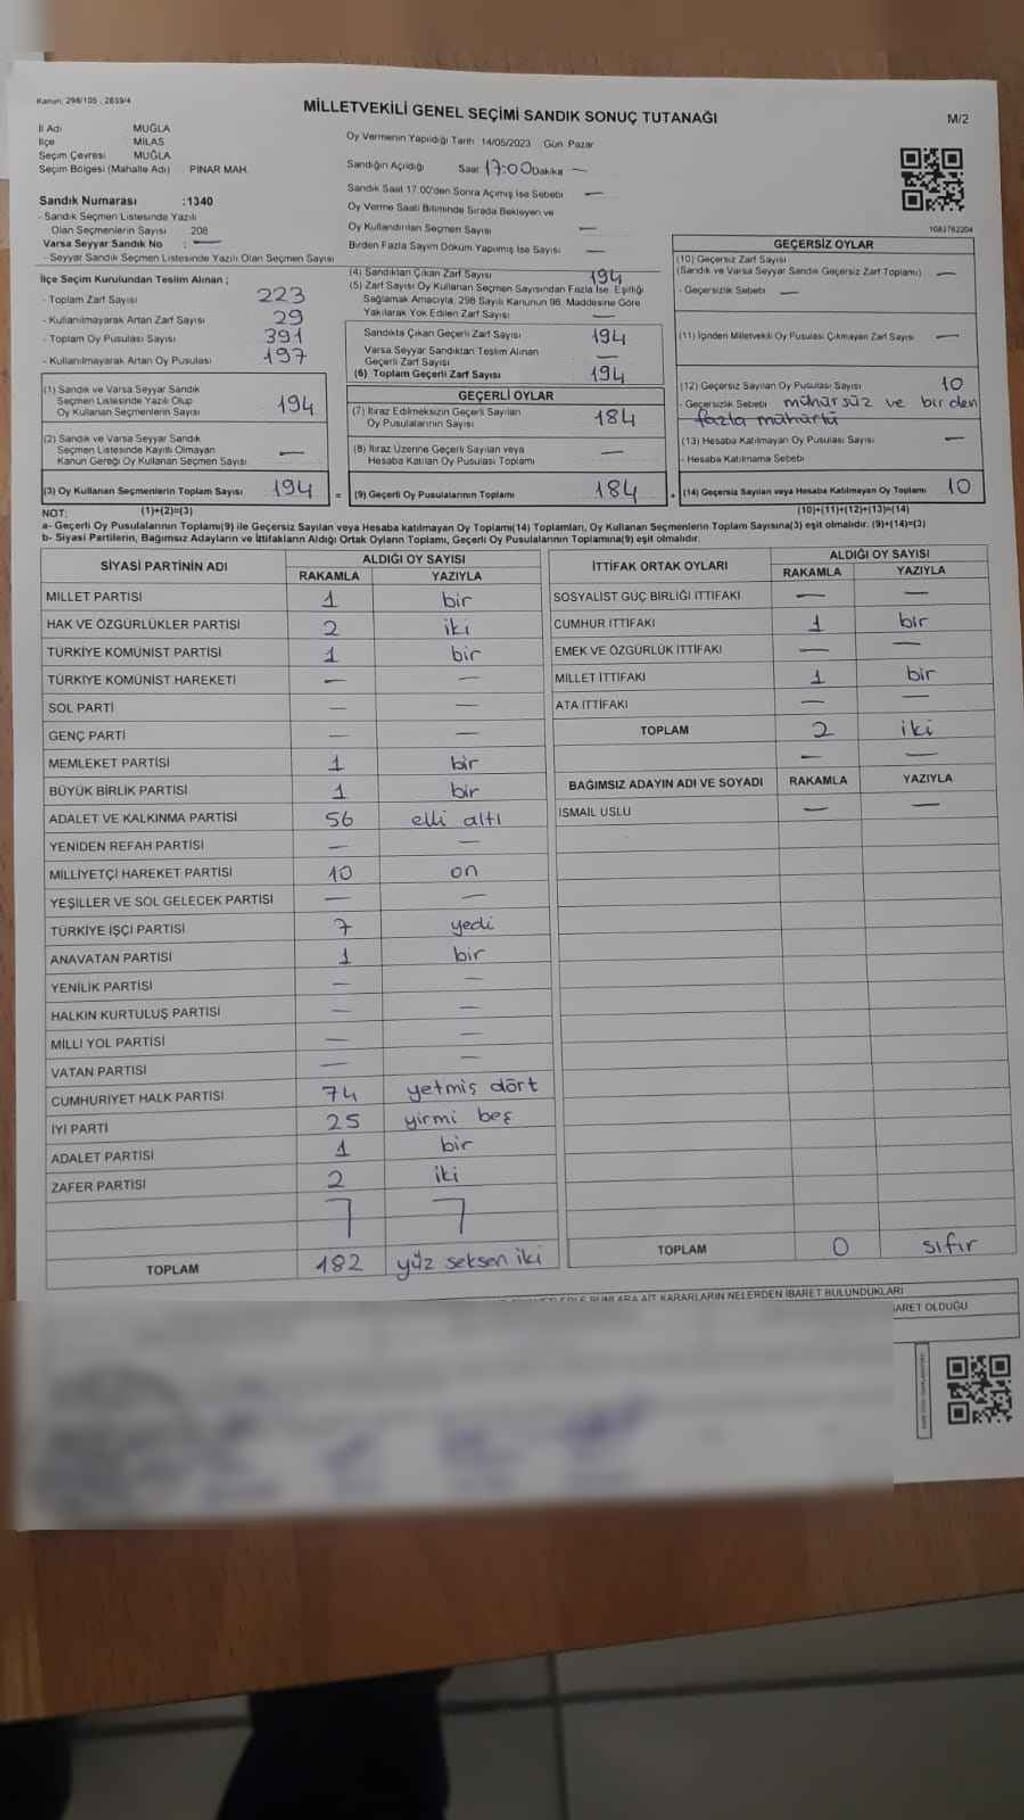 Kanun: 298/105 , 2839/4
MİLLETVEKİLİ GENEL SEÇİMİ SANDIK SONUÇ TUTANAĞI
M/2
İl Adı MUĞLA
İlçe MİLAS
Seçim Çevresi MUĞLA
Seçim Bölgesi (Mahalle Adı) PINAR MAH.
Oy Vermenin Yapıldığı Tarih 14/05/2023 Gün Pazar
Sandığın Açıldığı Saat 17:00 Dakika —
Sandık Saat 17.00'den Sonra Açılmış İse Sebebi —
Oy Verme Saati Bitiminde Sırada Bekleyen ve
Oy Kullandırılan Seçmen Sayısı —
Birden Fazla Sayım Döküm Yapılmış İse Sayısı —
Sandık Numarası :1340
- Sandık Seçmen Listesinde Yazılı
Olan Seçmenlerin Sayısı 208
Varsa Seyyar Sandık No : —
- Seyyar Sandık Seçmen Listesinde Yazılı Olan Seçmen Sayısı
1083782204
İlçe Seçim Kurulundan Teslim Alınan ;
- Toplam Zarf Sayısı 223
- Kullanılmayarak Artan Zarf Sayısı 29
- Toplam Oy Pusulası Sayısı 391
- Kullanılmayarak Artan Oy Pusulası 197
(1) Sandık ve Varsa Seyyar Sandık
Seçmen Listesinde Yazılı Olup
Oy Kullanan Seçmenlerin Sayısı 194
(2) Sandık ve Varsa Seyyar Sandık
Seçmen Listesinde Kayıtlı Olmayan
Kanun Gereği Oy Kullanan Seçmen Sayısı —
(3) Oy Kullanan Seçmenlerin Toplam Sayısı 194 =
(4) Sandıktan Çıkan Zarf Sayısı 194
(5) Zarf Sayısı Oy Kullanan Seçmen Sayısından Fazla İse, Eşitliği
Sağlamak Amacıyla, 298 Sayılı Kanunun 98. Maddesine Göre
Yakılarak Yok Edilen Zarf Sayısı —
Sandıkta Çıkan Geçerli Zarf Sayısı 194
Varsa Seyyar Sandıktan Teslim Alınan
Geçerli Zarf Sayısı —
(6) Toplam Geçerli Zarf Sayısı 194
GEÇERLİ OYLAR
(7) İtiraz Edilmeksizin Geçerli Sayılan
Oy Pusulalarının Sayısı 184
(8) İtiraz Üzerine Geçerli Sayılan veya
Hesaba Katılan Oy Pusulası Toplamı —
(9) Geçerli Oy Pusulalarının Toplamı 184
GEÇERSİZ OYLAR
(10) Geçersiz Zarf Sayısı
(Sandık ve Varsa Seyyar Sandık Geçersiz Zarf Toplamı) —
- Geçersizlik Sebebi —
(11) İçinden Milletvekili Oy Pusulası Çıkmayan Zarf Sayısı —
(12) Geçersiz Sayılan Oy Pusulası Sayısı 10
- Geçersizlik Sebebi mühürsüz ve birden
fazla mühürlü
(13) Hesaba Katılmayan Oy Pusulası Sayısı —
- Hesaba Katılmama Sebebi
(14) Geçersiz Sayılan veya Hesaba Katılmayan Oy Toplamı 10
NOT: (1)+(2)=(3) (10)+(11)+(12)+(13)=(14)
a- Geçerli Oy Pusulalarının Toplamı(9) ile Geçersiz Sayılan veya Hesaba katılmayan Oy Toplamı(14) Toplamları, Oy Kullanan Seçmenlerin Toplam Sayısına(3) eşit olmalıdır. (9)+(14)=(3)
b- Siyasi Partilerin, Bağımsız Adayların ve İttifakların Aldığı Ortak Oyların Toplamı, Geçerli Oy Pusulalarının Toplamına(9) eşit olmalıdır.
SİYASİ PARTİNİN ADI ALDIĞI OY SAYISI
RAKAMLA YAZIYLA
MİLLET PARTİSİ 1 bir
HAK VE ÖZGÜRLÜKLER PARTİSİ 2 iki
TÜRKİYE KOMÜNİST PARTİSİ 1 bir
TÜRKİYE KOMÜNİST HAREKETİ — —
SOL PARTİ — —
GENÇ PARTİ — —
MEMLEKET PARTİSİ 1 bir
BÜYÜK BİRLİK PARTİSİ 1 bir
ADALET VE KALKINMA PARTİSİ 56 elli altı
YENİDEN REFAH PARTİSİ — —
MİLLİYETÇİ HAREKET PARTİSİ 10 on
YEŞİLLER VE SOL GELECEK PARTİSİ — —
TÜRKİYE İŞÇİ PARTİSİ 7 yedi
ANAVATAN PARTİSİ 1 bir
YENİLİK PARTİSİ — —
HALKIN KURTULUŞ PARTİSİ — —
MİLLİ YOL PARTİSİ — —
VATAN PARTİSİ — —
CUMHURİYET HALK PARTİSİ 74 yetmiş dört
İYİ PARTİ 25 yirmi beş
ADALET PARTİSİ 1 bir
ZAFER PARTİSİ 2 iki
TOPLAM 182 yüz seksen iki
İTTİFAK ORTAK OYLARI ALDIĞI OY SAYISI
RAKAMLA YAZIYLA
SOSYALİST GÜÇ BİRLİĞİ İTTİFAKI — —
CUMHUR İTTİFAKI 1 bir
EMEK VE ÖZGÜRLÜK İTTİFAKI — —
MİLLET İTTİFAKI 1 bir
ATA İTTİFAKI — —
TOPLAM 2 iki
— —
BAĞIMSIZ ADAYIN ADI VE SOYADI RAKAMLA YAZIYLA
İSMAİL USLU — —
TOPLAM 0 sıfır
BUNLARA AİT KARARLARIN NELERDEN İBARET BULUNDUKLARI
İBARET OLDUĞU